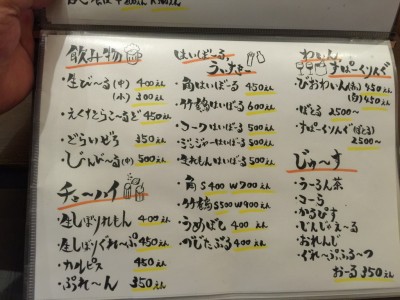 飲み物
・生びーる(中) 400えん
(小) 300えん
・えくすとらこーるど 450えん
・どらいぜろ 350えん
・びんびーる(中) 500えん
チューハイ
・生しぼりれもん 400えん
・生しぼりぐれーぷ 450えん
・カルピス 450えん
・ぷれーん 350えん
はいぼーる
うぃすきー
・角はいぼーる 450えん
・竹鶴はいぼーる 600えん
・コークはいぼーる 500えん
・ジンジャーはいぼーる 500えん
・生れもんはいぼーる 500えん
・角 S400 W700えん
・竹鶴 S500 W900えん
・うめぼし 400えん
・のじたぶる 400えん
わいん
すぱーくりんぐ
・びおわいん(赤) 450えん
(白) 450えん
・ぼとる 2500〜
・すぱーくりんぐ(ぼとる)
2500〜
じゅーす
・うーろん茶
・こーら
・かるぴす
・じんじゃえーる
・おれんじ
・ぐれーぷふるーつ
おーる350えん